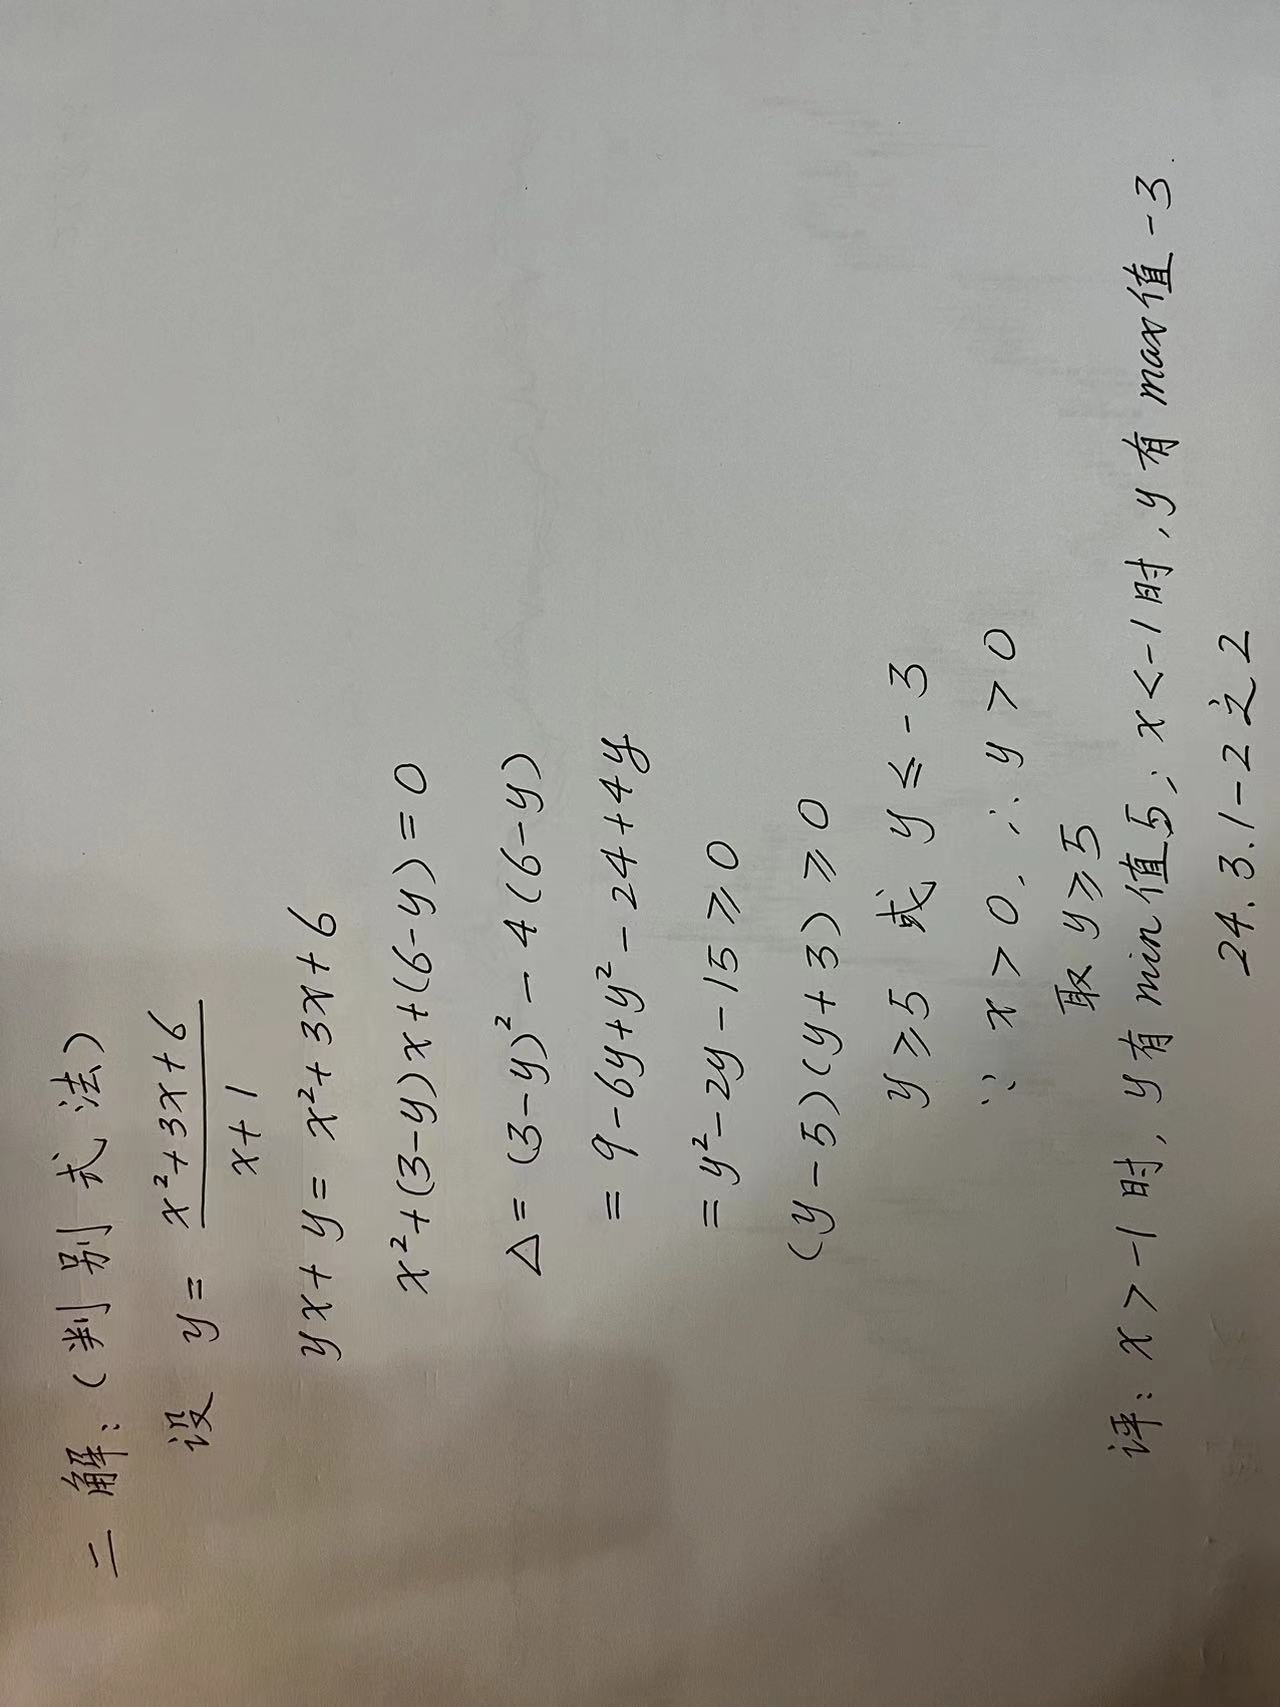 二 解:(判别式法)
设 y = (x²+3x+6)/(x+1)
yx+y = x²+3x+6
x²+(3-y)x+(6-y)=0
△=(3-y)²-4(6-y)
=9-6y+y²-24+4y
=y²-2y-15≥0
(y-5)(y+3)≥0
y≥5 或 y≤-3
∵ x>0, ∴ y>0
取 y≥5
评: x>-1时, y有min值5; x<-1时, y有max值-3.
24.3.1-2之2